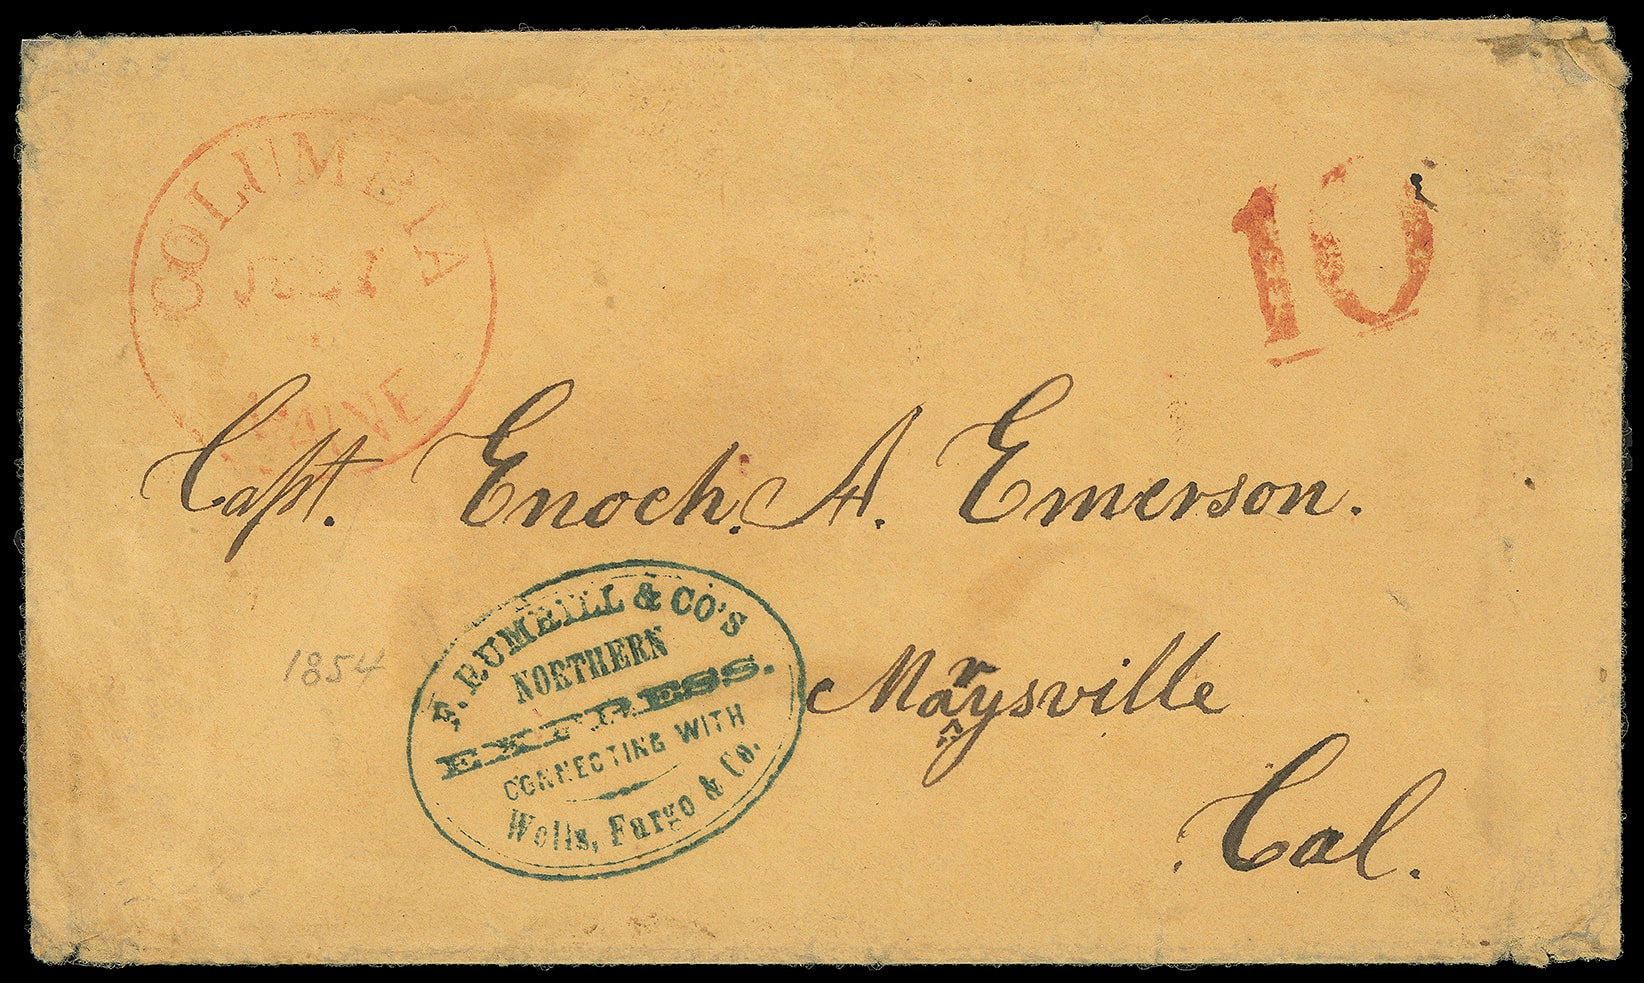 COLUMBIA
JUL 1
MAINE
10
Capt. Enoch. A. Emerson.
Marysville
Cal.
1854
F. RUMRILL & CO'S
NORTHERN
EXPRESS.
CONNECTING WITH
Wells, Fargo & Co.